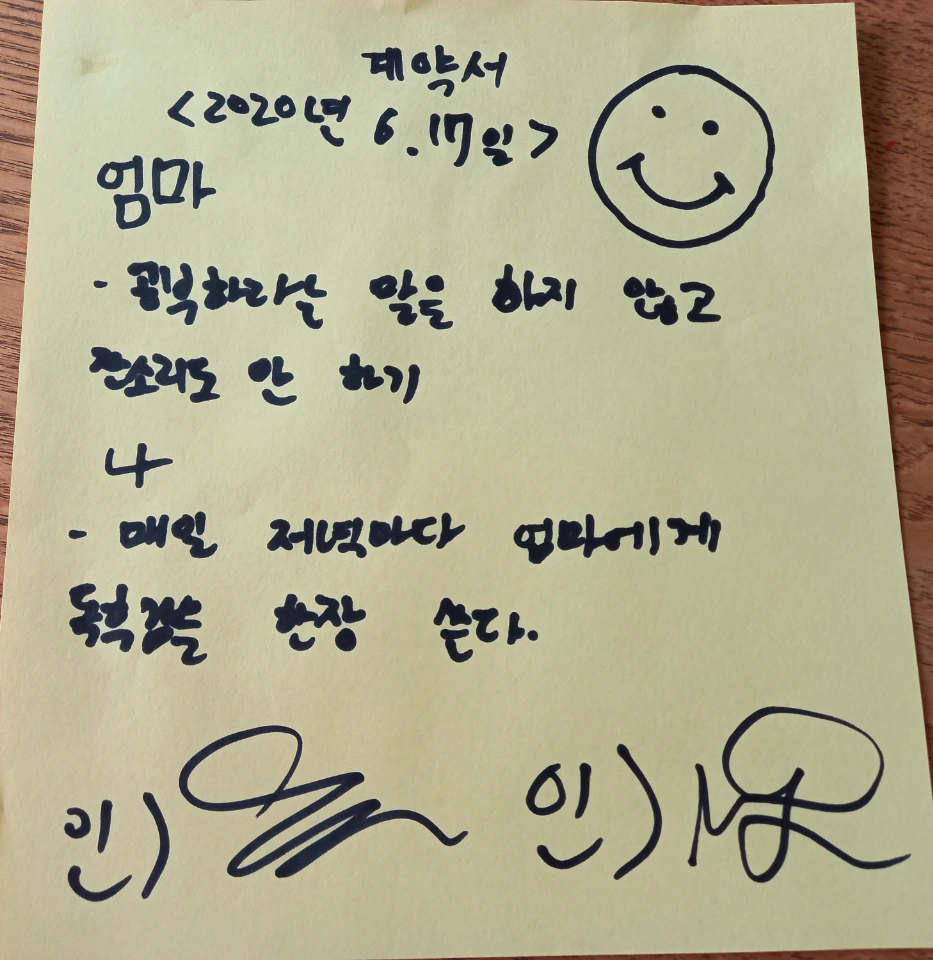 계약서
<2020년 6.17일>
엄마
- 공부하라는 말을 하지 않고
잔소리도 안 하기
나
- 매일 저녁마다 엄마에게
독후감을 한장 쓴다.
인) 인)